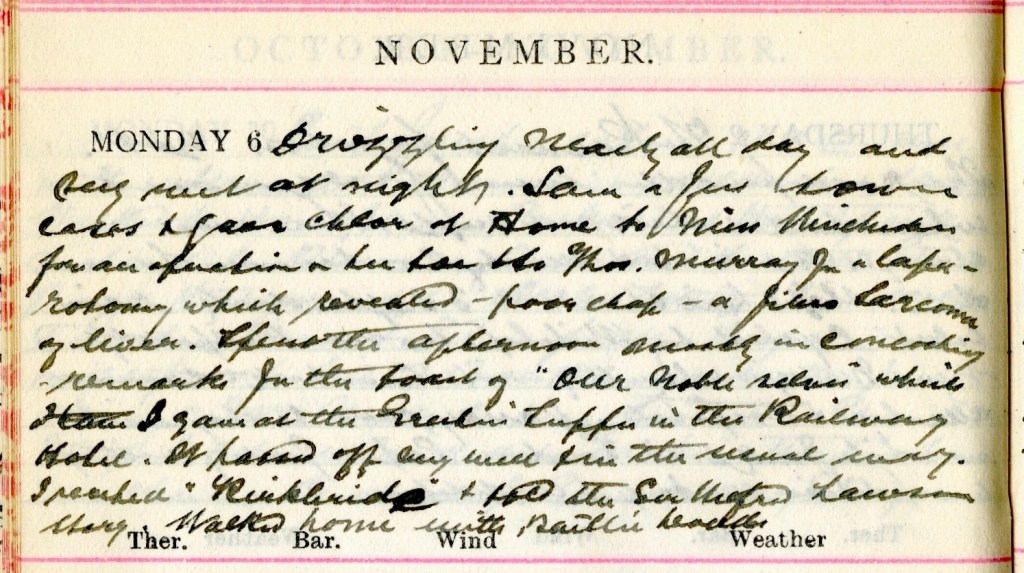 NOVEMBER.
MONDAY 6 Drizzling nearly all day and
very wet at night. Saw a few town
cases & gave Chlor at Home to Miss
for an operation on her & to Thos. Murray for a lapa-
rotomy which revealed - poor chap - a fibro Sarcoma
of liver. Spent the afternoon mostly in concocting
remarks for the toast of "Our Noble selves" which
I gave at the Erskine Supper in the Railway
Hotel. It passed off very well in the usual way.
I recited "Kirkbride" & told the Lawson
story. Walked home with Bailie
Ther. Bar. Wind Weather